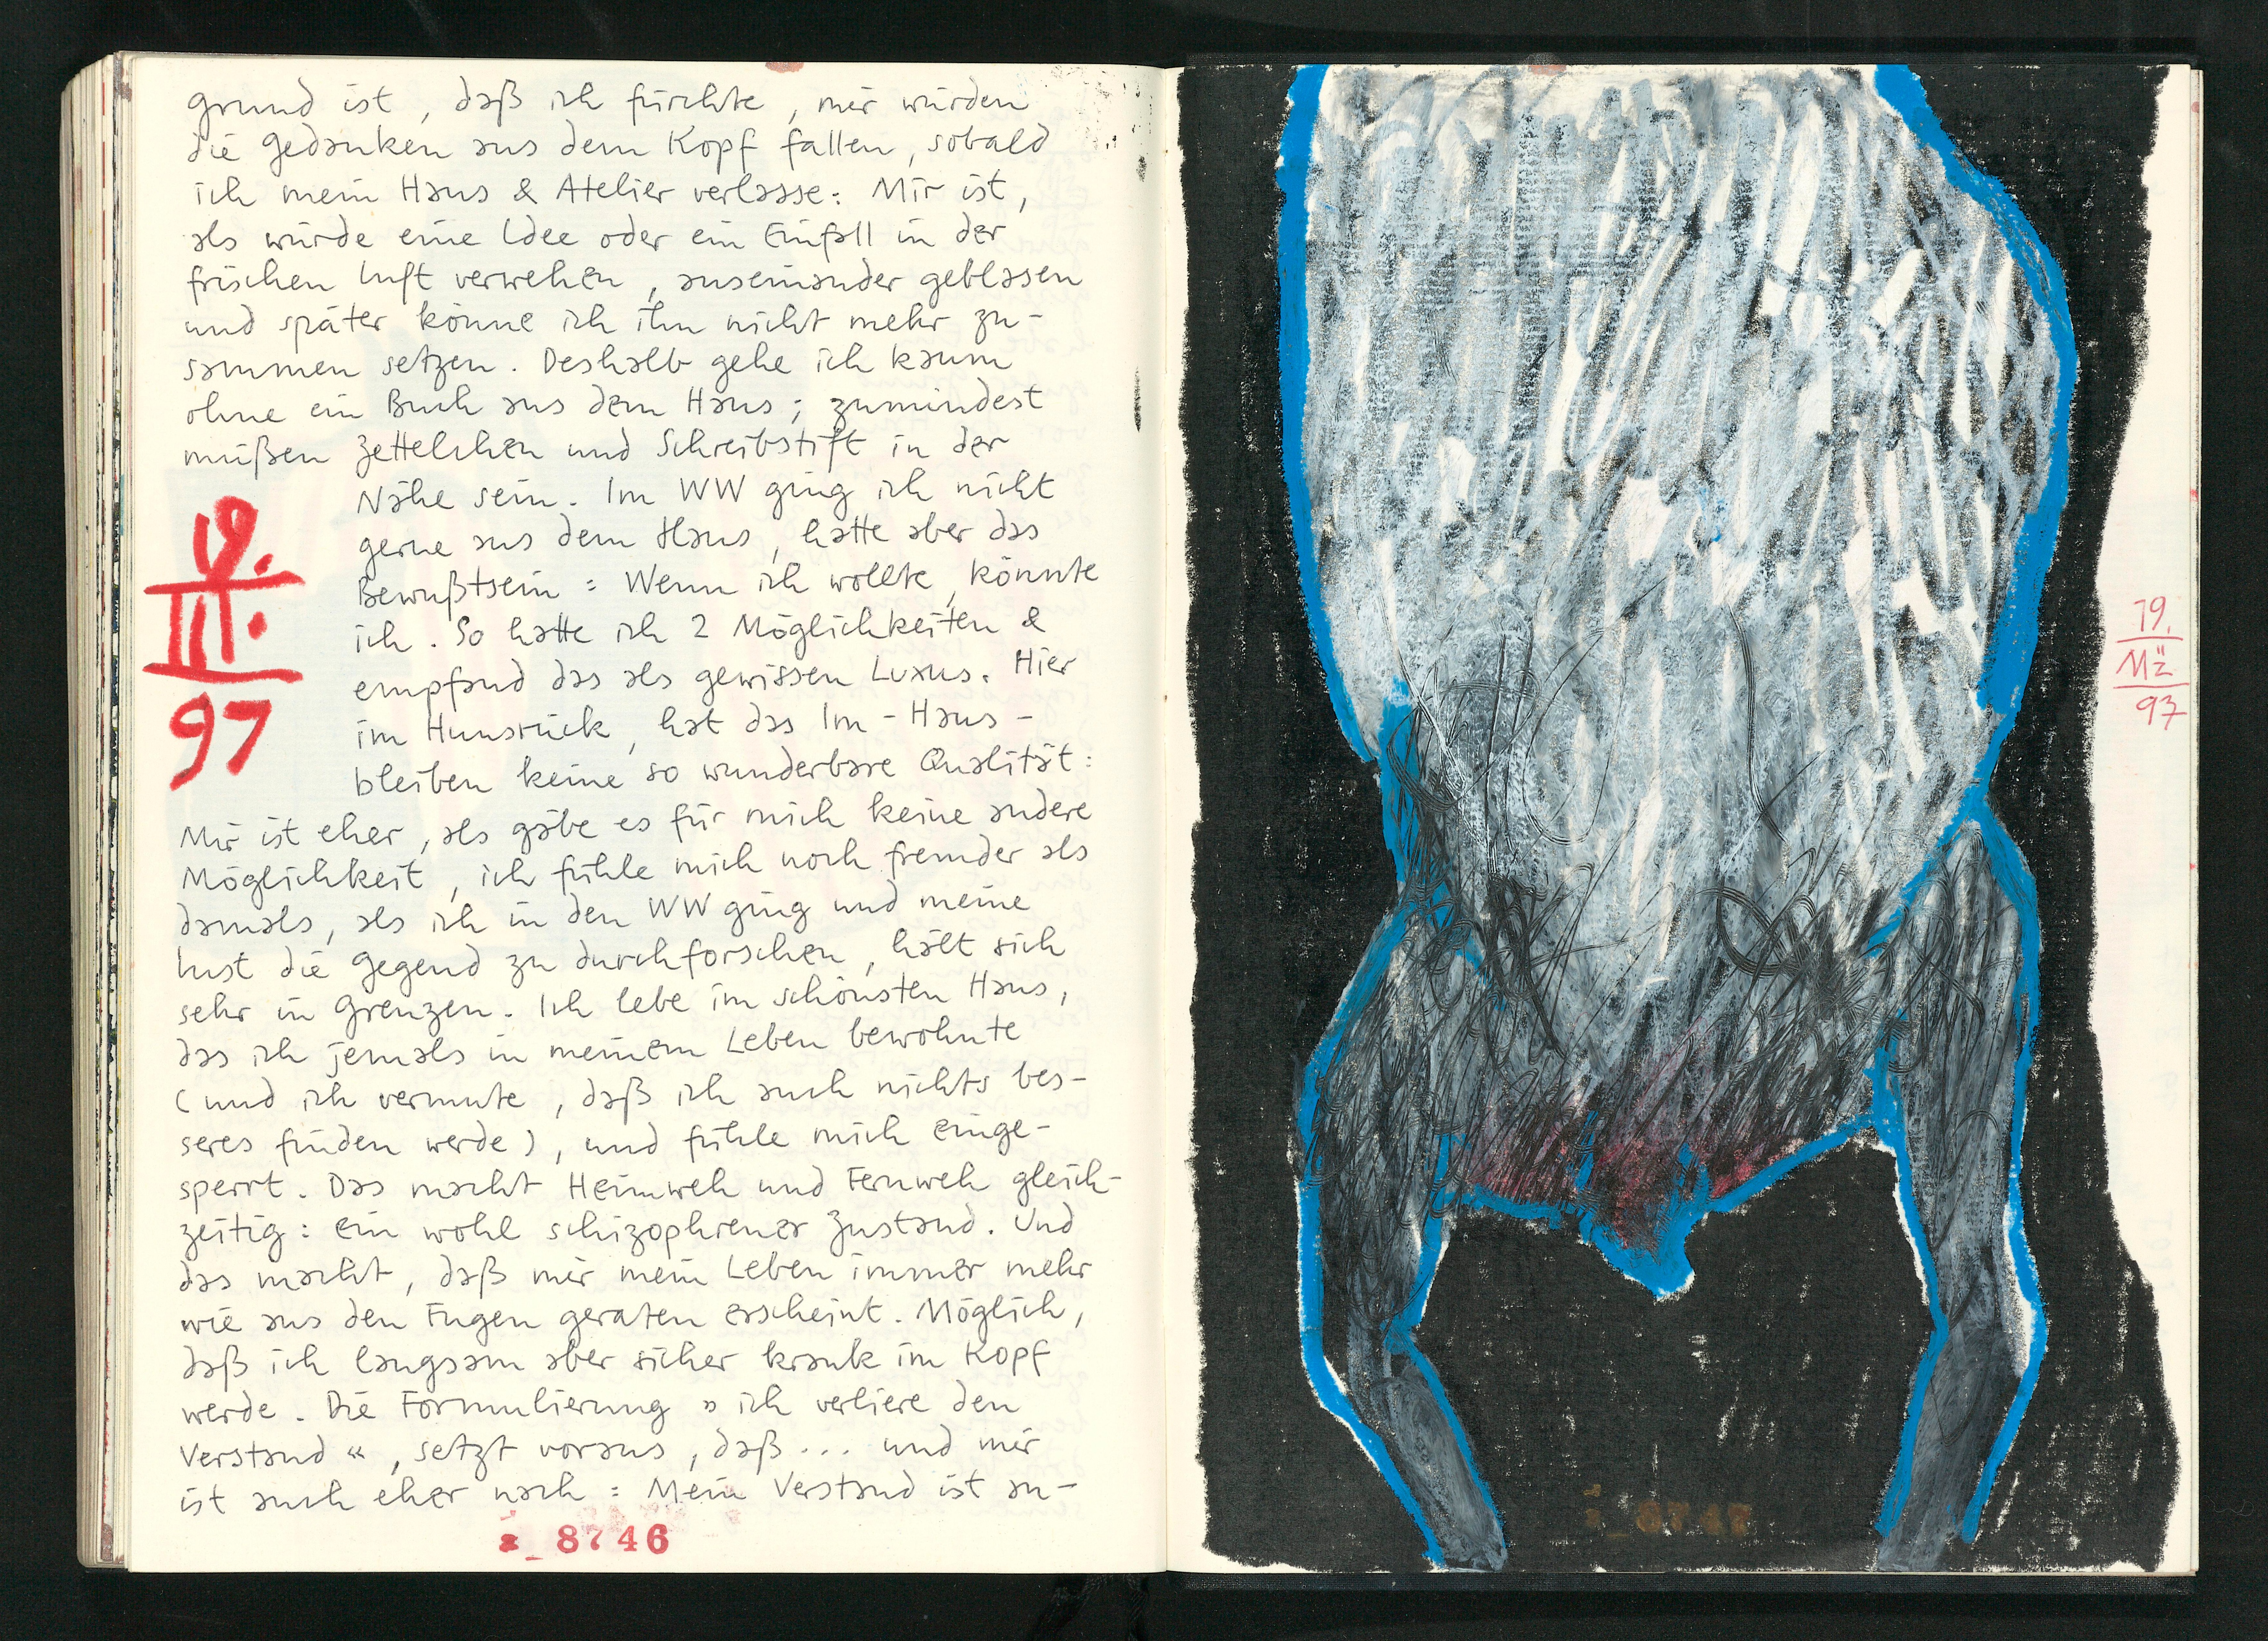 grund ist, daß ich fürchte, mir würden
die Gedanken aus dem Kopf fallen, sobald
ich mein Haus & Atelier verlasse: Mir ist,
als würde eine Idee oder ein Einfall in der
frischen Luft verwehen, auseinander geblasen
und später könne ich ihn nicht mehr zu-
sammen setzen. Deshalb gehe ich kaum
ohne ein Buch aus dem Haus; zumindest
müßen Zettelchen und Schreibstift in der
Nähe sein. Im WW ging ich nicht
gerne aus dem Haus, hatte aber das
Bewußtsein: Wenn ich wollte, könnte
ich. So hatte ich 2 Möglichkeiten &
empfand das als gewissen Luxus. Hier
im Hunsrück, hat das Im-Haus-
bleiben keine so wunderbare Qualität:
19.
III.
97
Mir ist eher, als gäbe es für mich keine andere
Möglichkeit, ich fühle mich noch fremder als
damals, als ich in den WW ging und meine
Lust die Gegend zu durchforschen, hält sich
sehr in Grenzen. Ich lebe im schönsten Haus,
das ich jemals in meinem Leben bewohnte
(und ich vermute, daß ich auch nichts bes-
seres finden werde), und fühle mich einge-
sperrt. Das macht Heimweh und Fernweh gleich-
zeitig: ein wohl schizophrener Zustand. Und
das macht, daß mir mein Leben immer mehr
wie aus den Fugen geraten erscheint. Möglich,
daß ich langsam aber sicher krank im Kopf
werde. Die Formulierung »ich verliere den
Verstand«, setzt voraus, daß... und mir
ist auch eher nach: Mein Verstand ist an-
8746
19.
Mä
97
8747